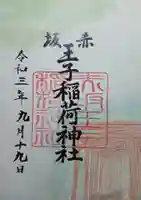 赤坂
王子稲荷神社
令和三年九月十九日